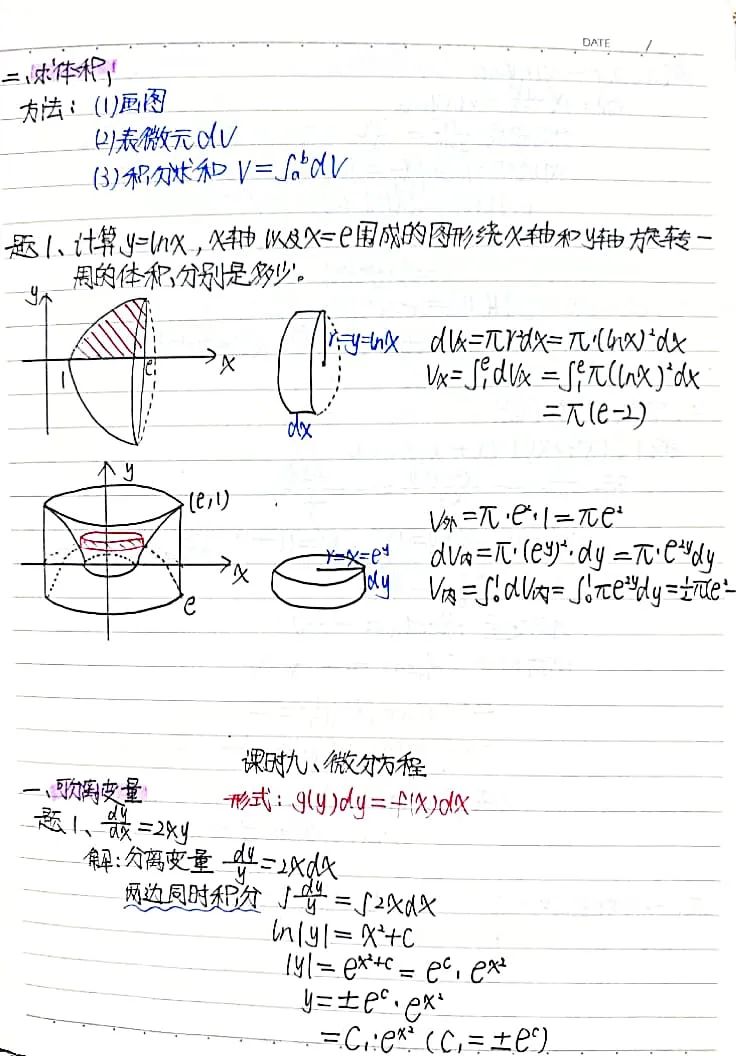 DATE /
二、求体积
方法：(1)画图
(2)表微元dV
(3)积分求和 V=∫ₐᵇdV
题1、计算y=lnx，x轴以及x=e围成的图形绕x轴和y轴旋转一
周的体积分别是多少。
y
1 e x
r=y=lnx
dx
dVx=πr²dx=π·(lnx)²dx
Vx=∫₁ᵉdVx=∫₁ᵉπ(lnx)²dx
=π(e-2)
y
(e,1)
x
e
r=x=eʸ
dy
V外=π·e²·1=πe²
dV内=π·(eʸ)²·dy=π·e²ʸdy
V内=∫₀¹dV内=∫₀¹πe²ʸdy=½π(e²-
课时九、微分方程
一、可分离变量
形式：g(y)dy=f(x)dx
题1、dy/dx=2xy
解：分离变量 dy/y=2xdx
两边同时积分 ∫dy/y=∫2xdx
ln|y|=x²+c
|y|=e^(x²+c)=e^c·e^(x²)
y=±e^c·e^(x²)
=C₁·e^(x²) (C₁=±e^c)